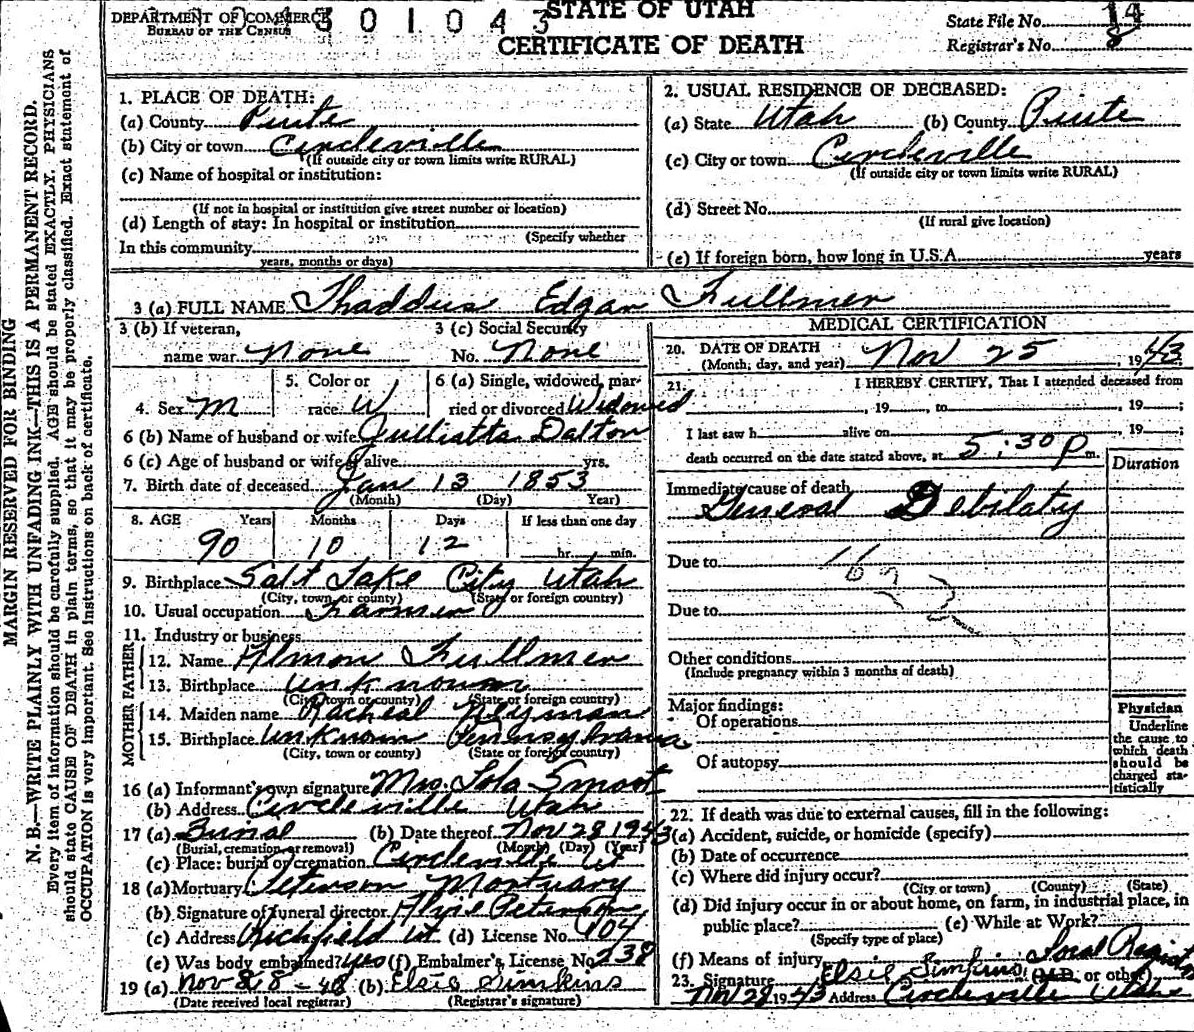 MARGIN RESERVED FOR BINDING
N. B.—WRITE PLAINLY WITH UNFADING INK—THIS IS A PERMANENT RECORD.
Every item of information should be carefully supplied. AGE should be stated EXACTLY. PHYSICIANS
should state CAUSE OF DEATH in plain terms, so that it may be properly classified. Exact statement of
OCCUPATION is very important. See instructions on back of certificate.
DEPARTMENT OF COMMERCE
BUREAU OF THE CENSUS
301043
STATE OF UTAH
CERTIFICATE OF DEATH
State File No. 14
Registrar's No. 8
1. PLACE OF DEATH:
(a) County Piute
(b) City or town Circleville
(If outside city or town limits write RURAL)
(c) Name of hospital or institution:
(If not in hospital or institution give street number or location)
(d) Length of stay: In hospital or institution
(Specify whether
In this community
years, months or days)
2. USUAL RESIDENCE OF DECEASED:
(a) State Utah (b) County Piute
(c) City or town Circleville
(If outside city or town limits write RURAL)
(d) Street No.
(If rural give location)
(e) If foreign born, how long in U.S.A. years
3 (a) FULL NAME Thaddus Edgar Fullmer
3 (b) If veteran,
name war None
3 (c) Social Security
No. None
4. Sex M
5. Color or
race W
6 (a) Single, widowed, mar-
ried or divorced Widowed
6 (b) Name of husband or wife Julliatta Dalton
6 (c) Age of husband or wife if alive yrs.
7. Birth date of deceased Jan 13 1853
(Month) (Day) Year)
8. AGE Years Months Days If less than one day
90 10 12 hr. min.
9. Birthplace Salt Lake City Utah
(City, town, or county) (State or foreign country)
10. Usual occupation Farmer
11. Industry or business
FATHER
12. Name Almon Fullmer
13. Birthplace unknown
(City, town or county) (State or foreign country)
MOTHER
14. Maiden name Racheal
15. Birthplace unknown Pennsylvania
(City, town or county) (State or foreign country)
16 (a) Informant's own signature Mrs. Lola Smoot
(b) Address Circleville Utah
17 (a) Burial (b) Date thereof Nov 28 1943
(Burial, cremation, or removal) (Month) (Day) (Year)
(c) Place: burial or cremation Circleville Ut
18 (a) Mortuary Peterson Mortuary
(b) Signature of funeral director Peterson
(c) Address Richfield Ut (d) License No. 104
(e) Was body embalmed? yes (f) Embalmer's License No. 238
19 (a) Nov (b) Elsie Simkins
(Date received local registrar) (Registrar's signature)
MEDICAL CERTIFICATION
20. DATE OF DEATH
(Month, day, and year) Nov 25, 1943
21. I HEREBY CERTIFY, That I attended deceased from
, 19 , to , 19 ;
I last saw h alive on , 19 ;
death occurred on the date stated above, at 5:30 P m.
Duration
Immediate cause of death
General Debilaty
Due to 162
Due to
Other conditions
(Include pregnancy within 3 months of death)
Major findings:
Of operations
Of autopsy
Physician
Underline
the cause to
which death
should be
charged sta-
tistically
22. If death was due to external causes, fill in the following:
(a) Accident, suicide, or homicide (specify)
(b) Date of occurrence
(c) Where did injury occur?
(City or town) (County) (State)
(d) Did injury occur in or about home, on farm, in industrial place, in
public place? (e) While at Work?
(Specify type of place)
(f) Means of injury
23. Signature Elsie Simkins Local Regist (M.D. or other)
Nov 29 1943 Address Circleville Utah